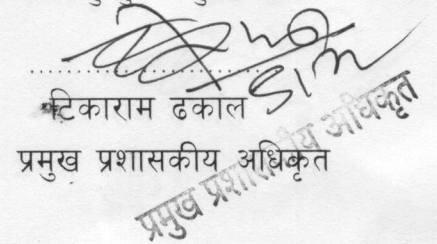 टिकाराम ढकाल
प्रमुख प्रशासकीय अधिकृत
प्रमुख प्रशासकीय अधिकृत